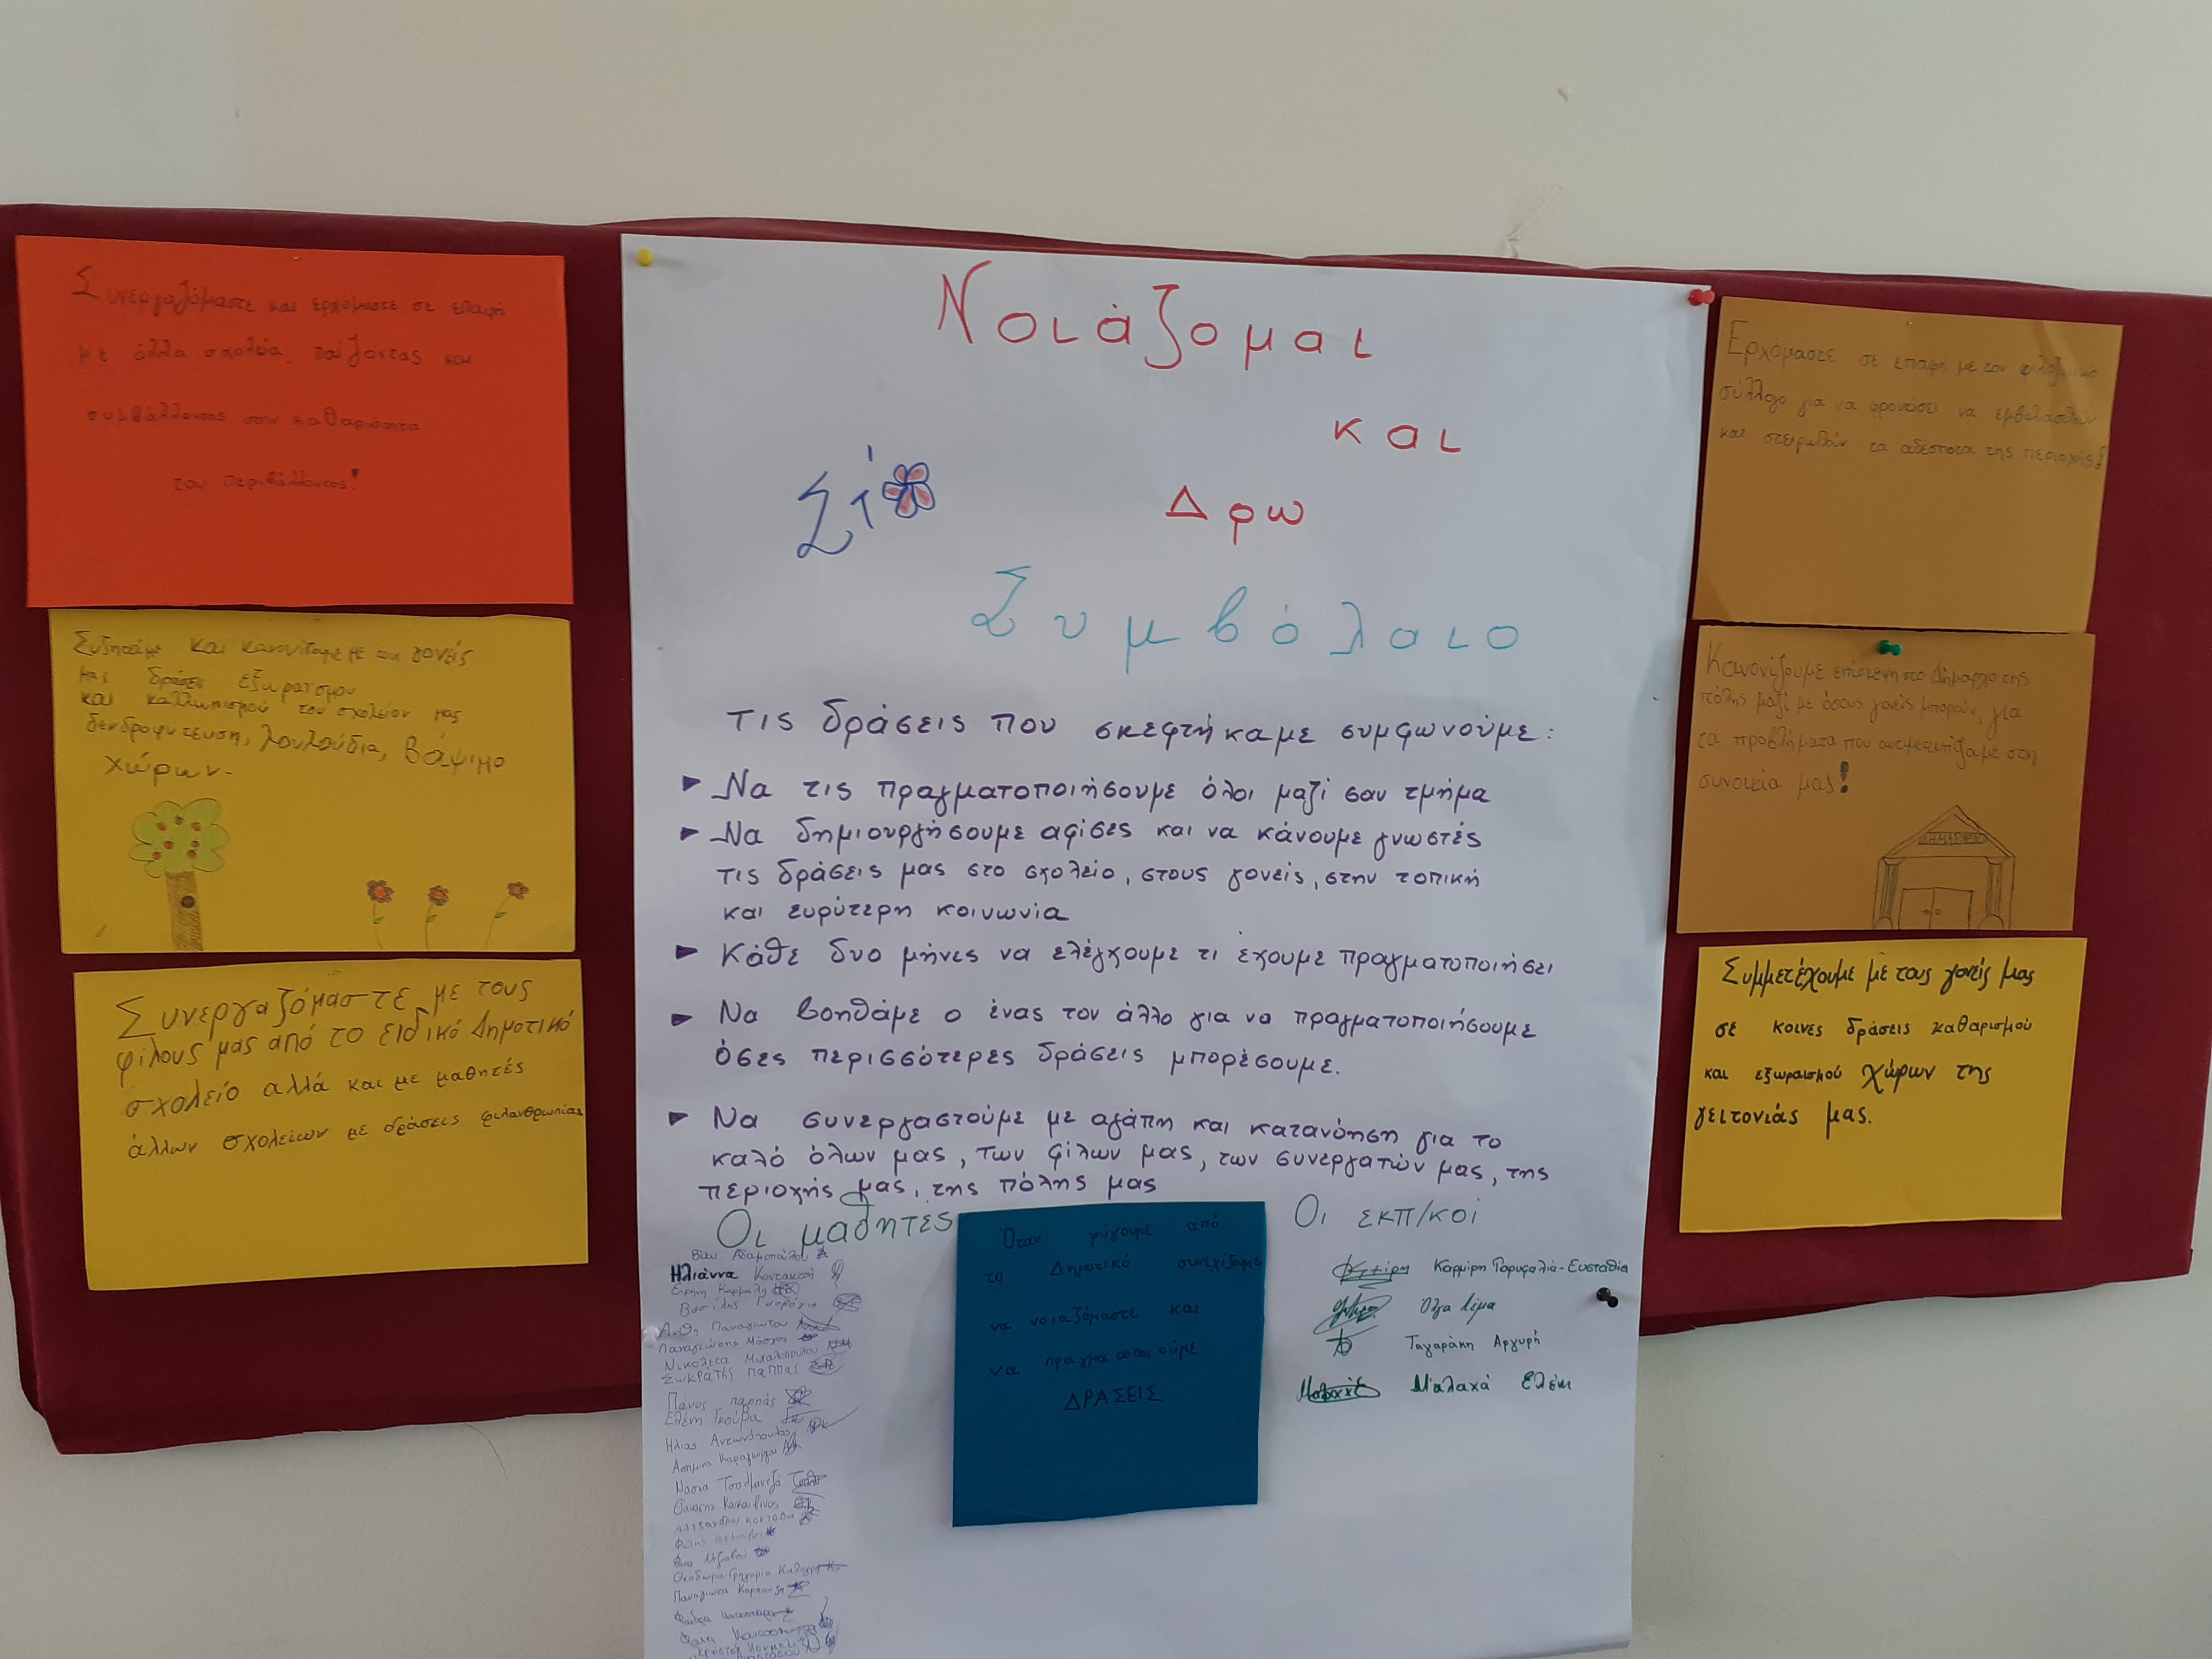 Συνεργαζόμαστε και ερχόμαστε σε επαφή
με άλλα σχολεία, παίζοντας και
συμβάλλοντας στην καθαριότητα
του περιβάλλοντος!
Συζητάμε και κανονίζουμε με τους γονείς
μας δράσεις εξωραϊσμού
και καλλωπισμού του σχολείου μας
δενδροφυτευση, λουλούδια, βάψιμο
χώρων-
Συνεργαζόμαστε με τους
φίλους μας από το ειδικό Δημοτικό
σχολείο αλλά και με μαθητές
άλλων σχολείων με δράσεις φιλανθρωπίας
Νοιάζομαι
και
Δρω
Στ'
Συμβόλαιο
τις δράσεις που σκεφτήκαμε συμφωνούμε:
Να τις πραγματοποιήσουμε όλοι μαζί σαν τμήμα
Να δημιουργήσουμε αφίσες και να κάνουμε γνωστές
τις δράσεις μας στο σχολείο, στους γονείς, στην τοπική
και ευρύτερη κοινωνία
Κάθε δυο μήνες να ελέγχουμε τι έχουμε πραγματοποιήσει
Να βοηθάμε ο ένας τον άλλο για να πραγματοποιήσουμε
όσες περισσότερες δράσεις μπορέσουμε.
Να συνεργαστούμε με αγάπη και κατανόηση για το
καλό όλων μας, των φίλων μας, των συνεργατών μας, της
περιοχής μας, της πόλης μας
Οι μαθητές
Βίκυ Αδαμοπούλου
Ηλιάννα
Ειρήνη Καρμάλη
Βασίλης
Ανθή Παναγιώτου
Παναγιώτης Μόσχος
Νικολέτα Μιχαλοπούλου
Σωκράτης Παππάς
Πάνος Παππάς
Ελένη Γκούβα
Ηλίας Αντωνόπουλος
Ασημίνα Καραγιώργου
Νάσια
Θανάσης
Αλέξανδρος
Φώτης
Θεοδώρα-Γρηγορία
Παναγιώτα
Φαίδρα
Όταν φύγουμε από
το Δημοτικό συνεχίζουμε
να νοιαζόμαστε και
να πραγματοποιούμε
ΔΡΑΣΕΙΣ
Οι εκπ/κοί
Καρμίρη Γαρυφαλιά-Ευσταθία
Όλγα Λίμα
Ταγαράκη Αργυρή
Μαλαχά Ελένη
Ερχόμαστε σε επαφή με τον φιλοζωικό
σύλλογο για να φροντίσει να εμβολιασθούν
και στειρωθούν τα αδέσποτα της περιοχής!
Κανονίζουμε επίσκεψη στο Δήμαρχο της
πόλης μαζί με όσους γονείς μπορούν, για
τα προβλήματα που αντιμετωπίζουμε στη
συνοικία μας!
ΔΗΜΑΡΧΕΙΟ
Συμμετέχουμε με τους γονείς μας
σε κοινες δράσεις καθαρισμού
και εξωραισμού χώρων της
γειτονιάς μας.